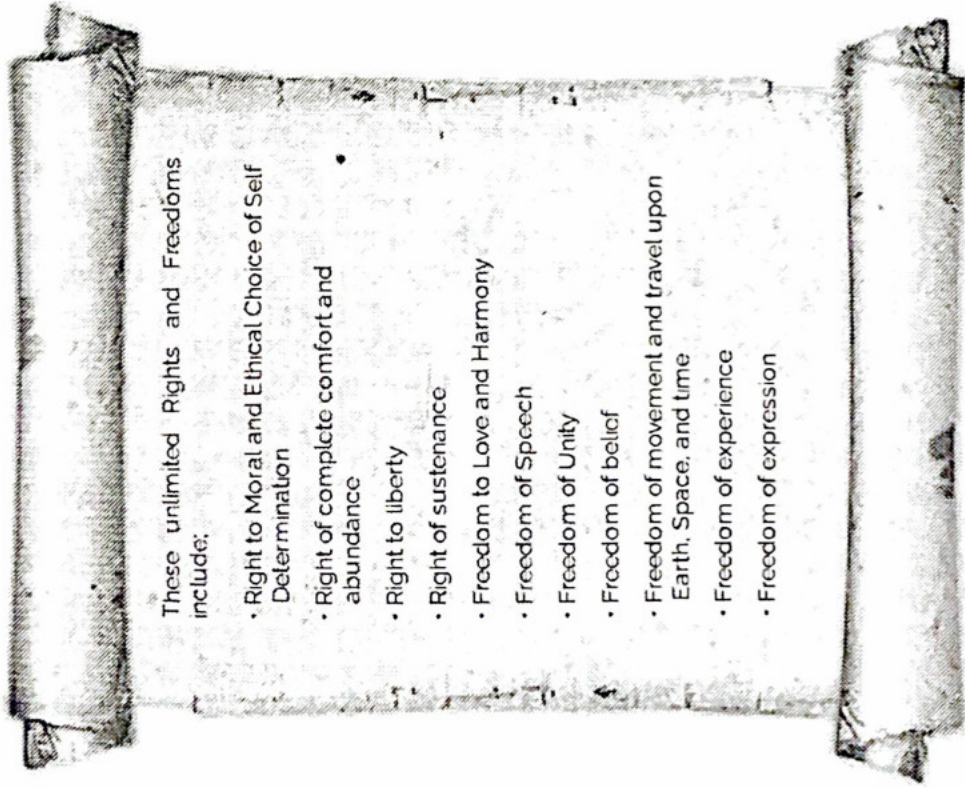 These unlimited Rights and Freedoms
include;
• Right to Moral and Ethical Choice of Self
Determination
• Right of complete comfort and
abundance
• Right to liberty
• Right of sustenance
• Freedom to Love and Harmony
• Freedom of Speech
• Freedom of Unity
• Freedom of belief
• Freedom of movement and travel upon
Earth, Space, and time
• Freedom of experience
• Freedom of expression